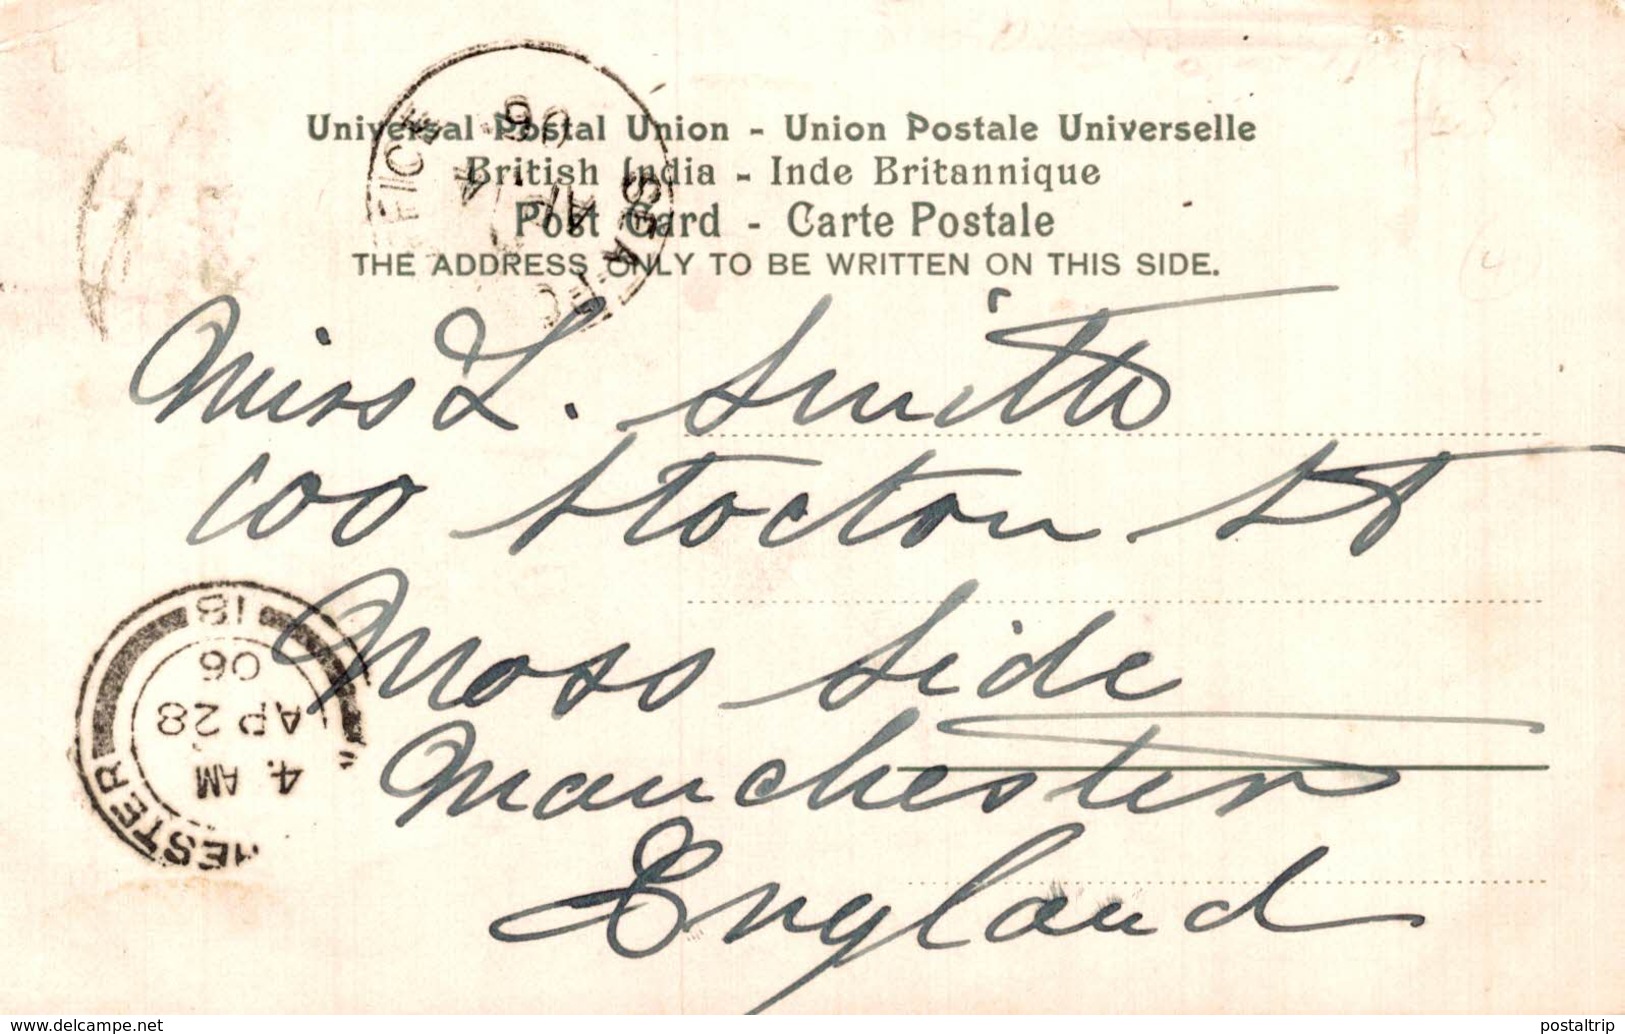 Universal Postal Union - Union Postale Universelle
British India - Inde Britannique
Post Card - Carte Postale
THE ADDRESS ONLY TO BE WRITTEN ON THIS SIDE.
Miss L. Smith
100 Stocton St
Moss Side
Manchester
England
SEA POST OFFICE
06
18
06
AP 28
4. AM
HESTER
www.delcampe.net
postaltrip